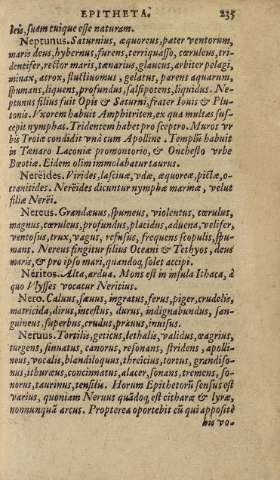 EPITHETA. 235
ſcis, ſuam cuique eſſe naturam.
Neptunus. Saturnius, æquoreus, pater ventorum,
maris deus, hybernus, furens, terriquaſſo, cæruleus, tri-
dentifer, rector maris, tænarius, glaucus, arbiter pelagi,
minax, atrox, fluctiuomus, gelatus, parens aquarum,
ſpumans, liquens, profundus, ſalſipotens, liquidus. Ne-
ptunus filius fuit Opis & Saturni, frater Iouis & Plu-
tonis. Vxorem habuit Amphitriten, ex qua multas ſuſ-
cepit nymphas. Tridentem habet pro ſceptro. Muros vr
bis Troiæ condidit vnà cum Apolline. Templũ habuit
in Tenaro Laconiæ promontorio, & Oncheſto vrbe
Bœotiæ. Eidem olim immolabatur taurus.
Nereides. Virides, laſciuæ, vdæ, æquoreæ, pictæ, o-
ceanitides. Nereides dicuntur nymphæ marinæ, velut
filiæ Nerëi.
Nereus. Grandæuus, ſpumeus, violentus, cœrulus,
magnus, cœruleus, profundus, placidus, aduena, velifer,
ventoſus, trux, vagus, refuſus, frequens ſcopulis, ſpu-
mans. Nereus fingitur filius Oceani & Tethyos, deus
maris, & pro ipſo mari, quandoq, ſolet accipi.
Néritos. Alta, ardua. Mons eſt in inſula Ithaca, à
quo Vlyſſes vocatur Neritius.
Nero. Caluus, ſæuus, ingratus, ferus, piger, crudelis,
matricida, dirus, inceſtus, durus, indignabundus, ſan-
guineus, ſuperbus, crudus, prauus, inuiſus.
Neruus. Tortilis, geticus, lethalis, validus, œagrius,
turgens, ſinuatus, canorus, reſonans, ſtridens, apolli-
neus, vocalis, blandiloquus, threïcius, tortus, grandiſo-
nus, ithuræus, concinnatus, alacer, ſonans, tremens, ſo-
norus, taurinus, tenſilis. Horum Epithetorũ ſenſus eſt
varius, quoniam Neruus quãdoq, eſt citharæ & lyræ,
nonnunquã arcus. Propterea oportebit eũ qui appoſitè
his vo-